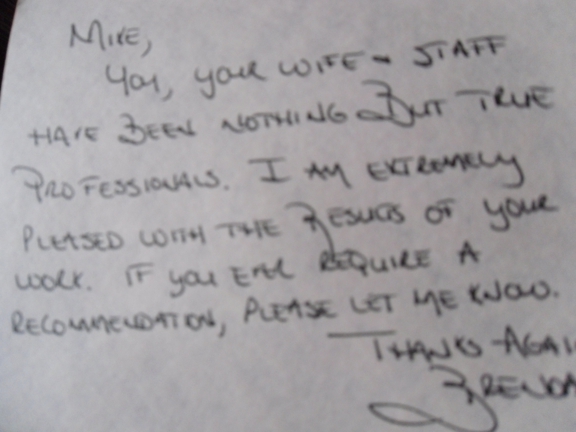 Mike,
You, your wife & staff
have been nothing but true
professionals. I am extremely
pleased with the results of your
work. If you ever require a
recommendation, please let me know.
Thanks Agai
Brenda